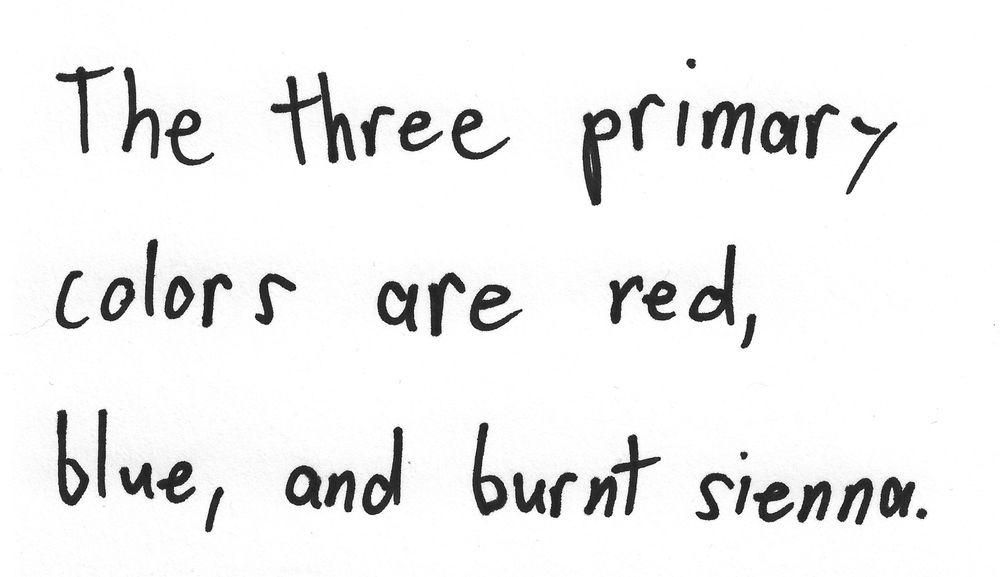 The three primary
colors are red,
blue, and burnt sienna.